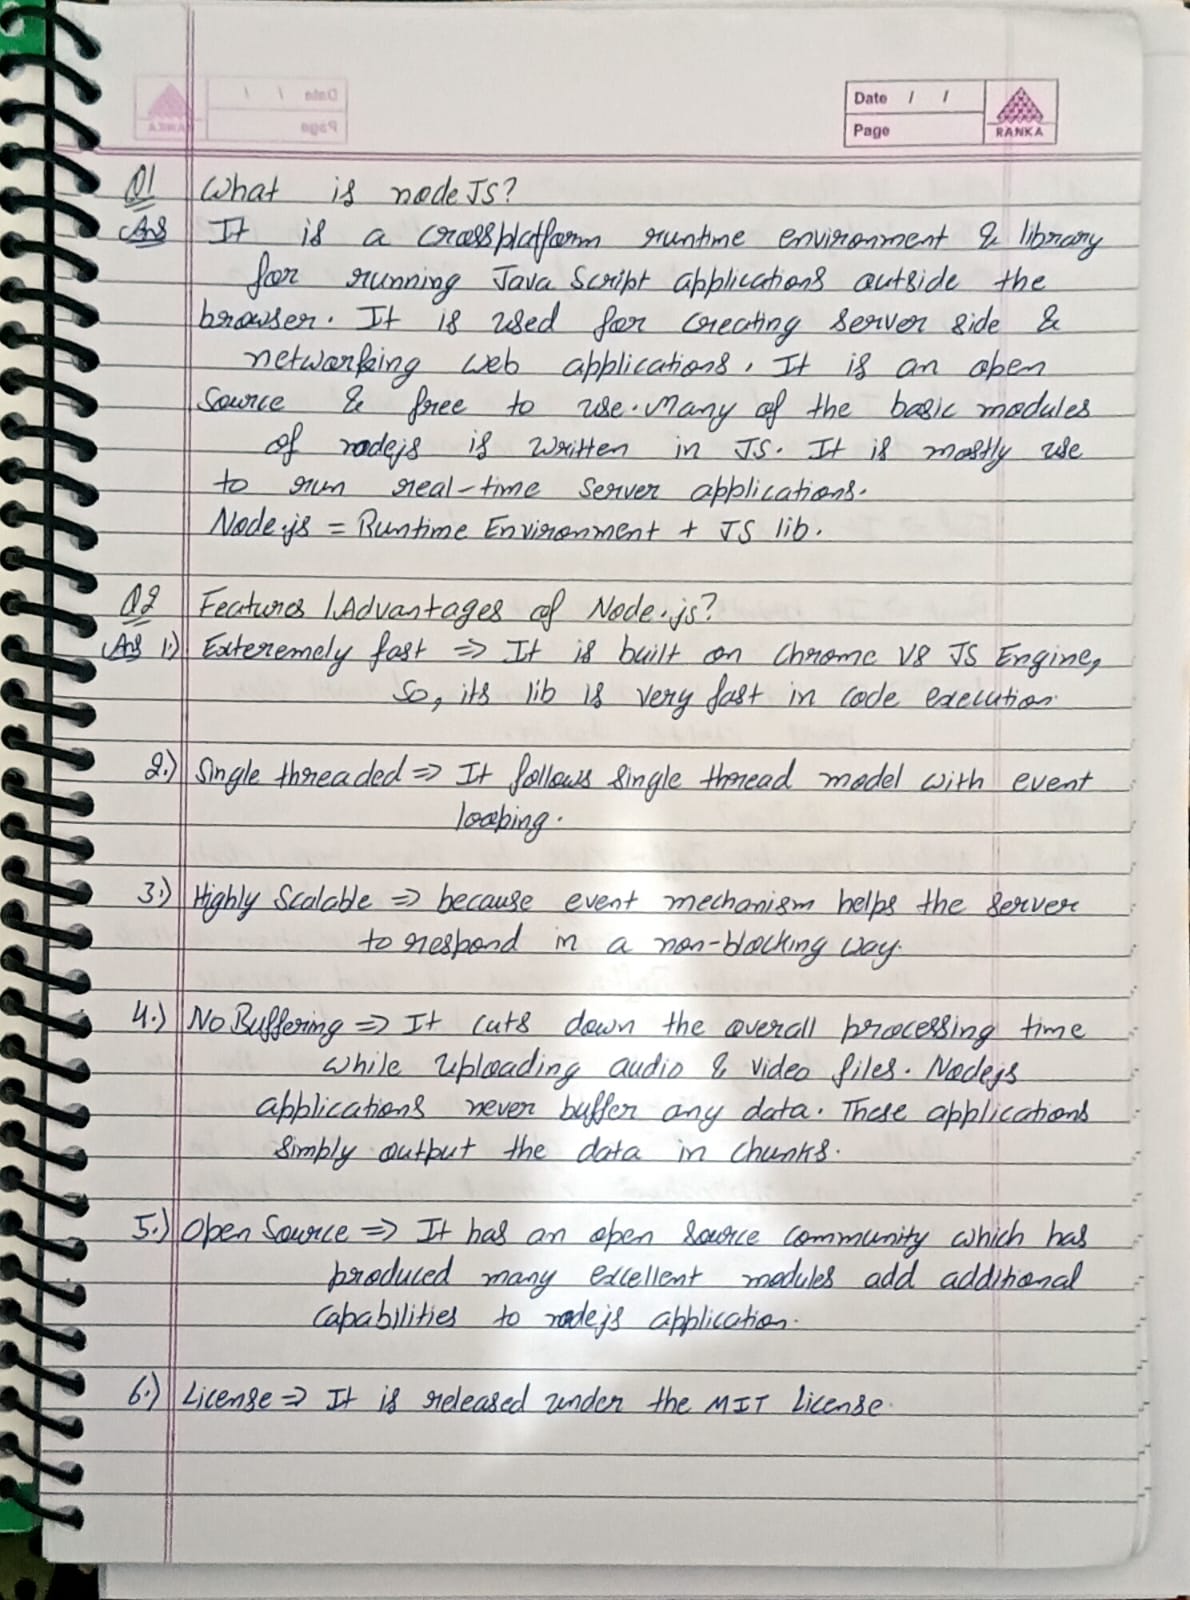 Date / /
Page
RANKA
Q1 What is node JS?
Ans It is a crossplatform runtime environment & library
for running Java Script applications outside the
browser. It is used for creating server side &
networking web applications. It is an open
source & free to use. Many of the basic modules
of nodejs is written in JS. It is mostly use
to run real-time server applications.
Node.js = Runtime Environment + JS lib.
Q2 Features / Advantages of Node.js?
Ans 1.) Exteremely fast => It is built on Chrome V8 JS Engine,
So, its lib is very fast in code execution.
2.) Single threaded => It follows single thread model with event
looping.
3.) Highly Scalable => because event mechanism helps the server
to respond in a non-blocking way.
4.) No Buffering => It cuts down the overall processing time
while uploading audio & video files. Nodejs
applications never buffer any data. These applications
simply output the data in chunks.
5.) Open Source => It has an open source community which has
produced many excellent modules add additional
capabilities to nodejs application.
6.) License => It is released under the MIT License.